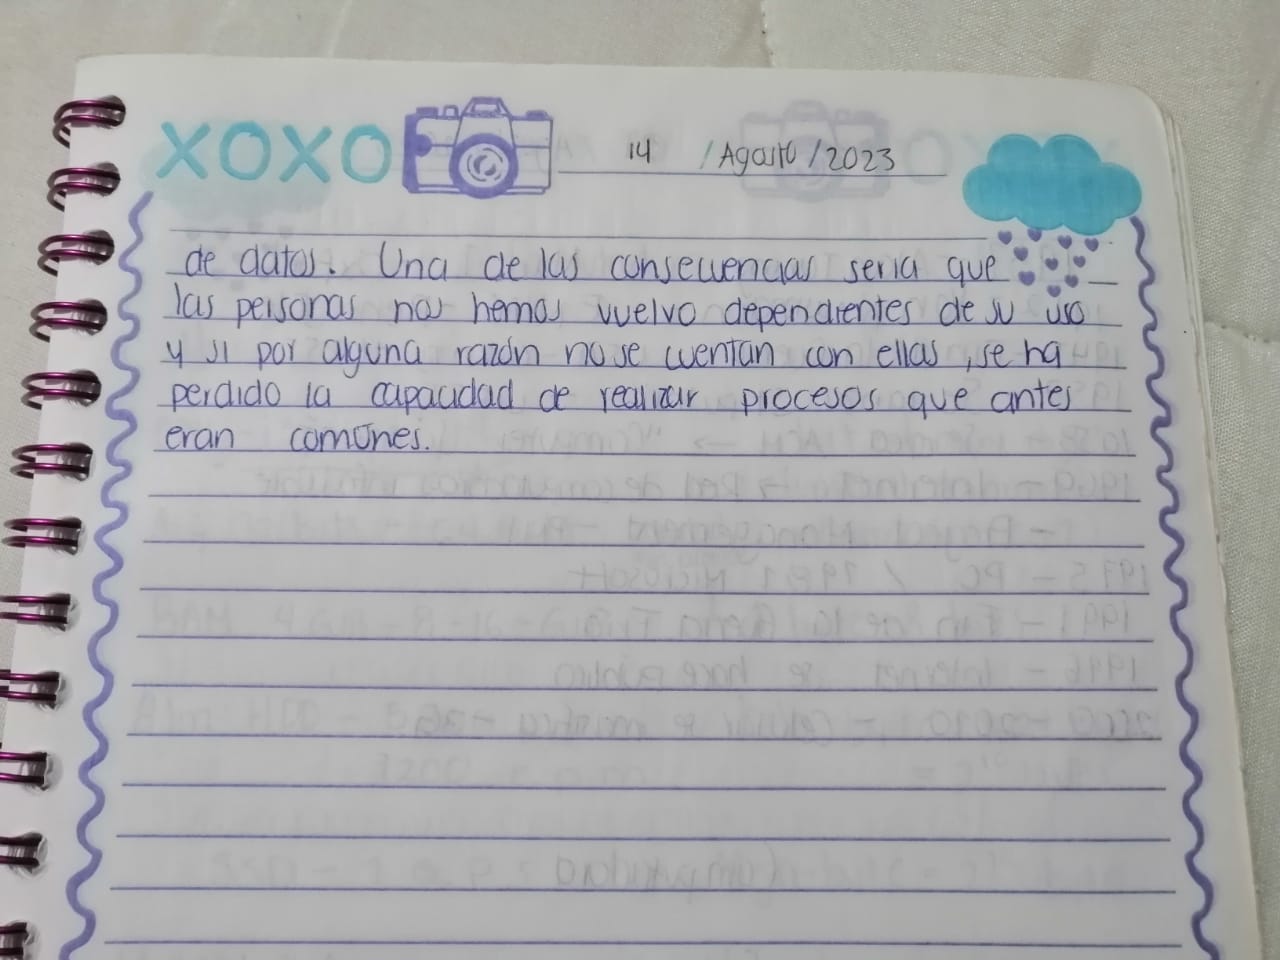 XOXO
14 / Agosto / 2023
de datos. Una de las consecuencias seria que
las personas nos hemos vuelvo dependientes de su uso
y si por alguna razón no se cuentan con ellas, se ha
perdido la capacidad de realizar procesos que antes
eran comunes.